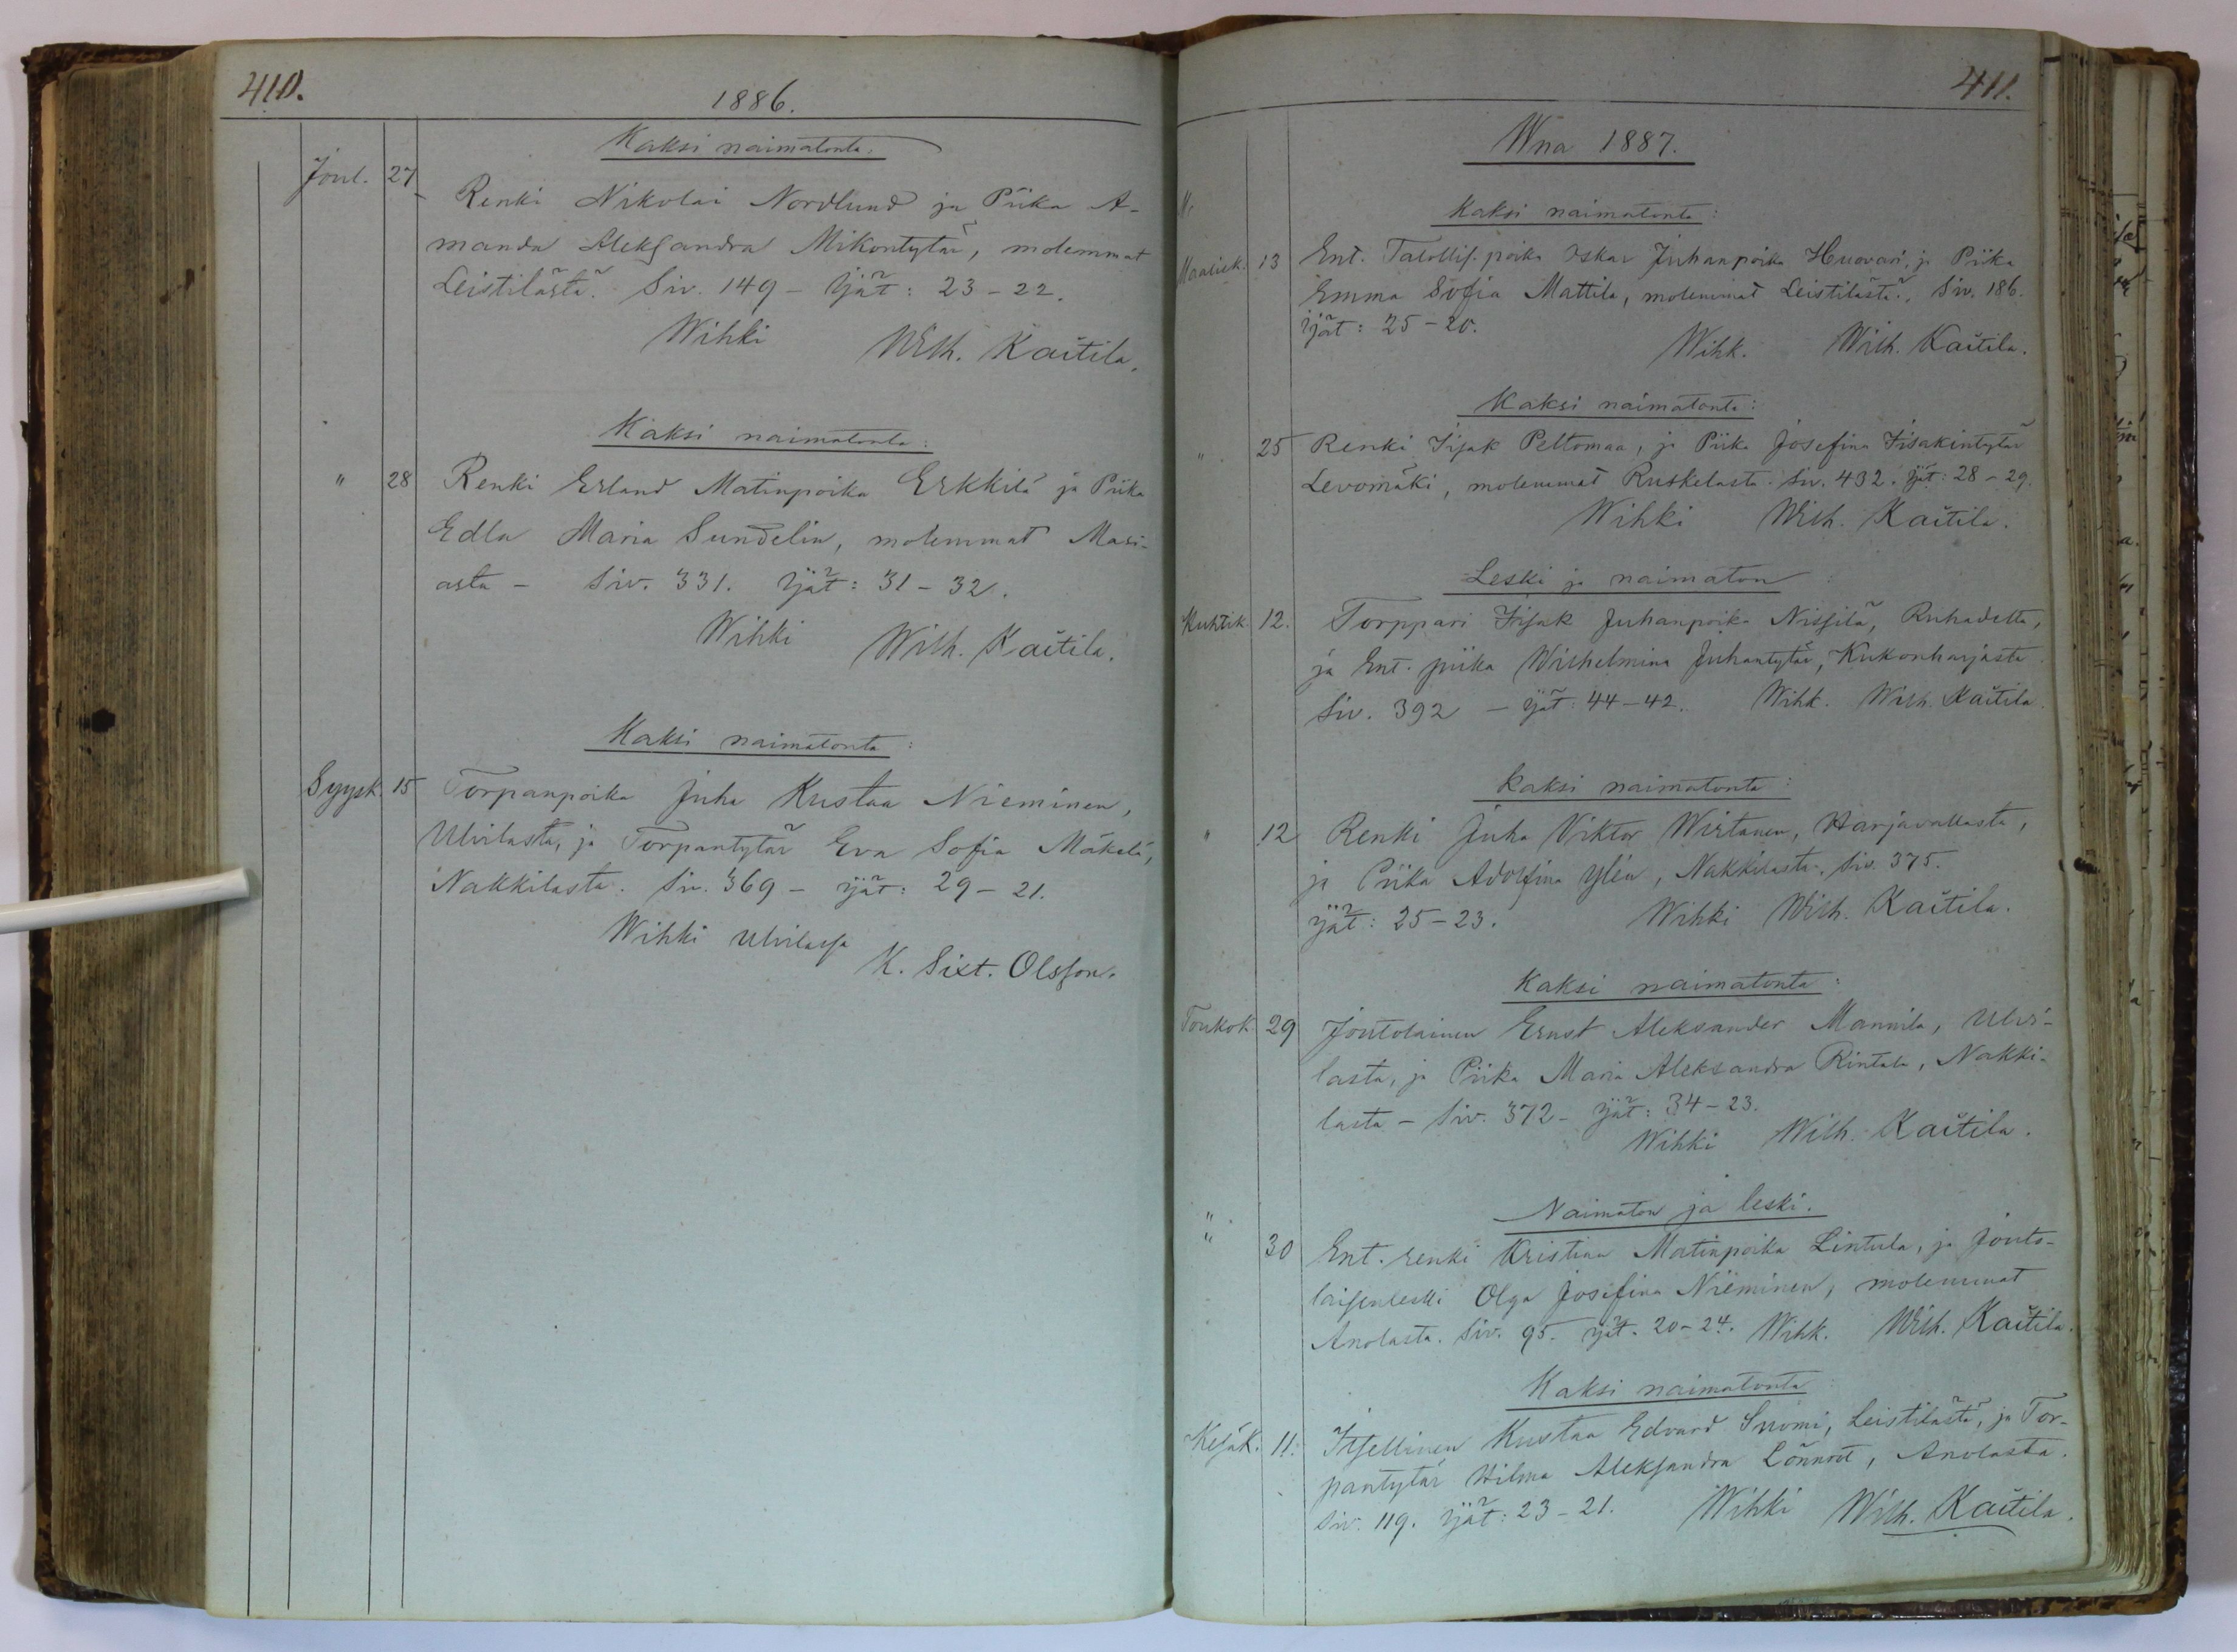 410.
1886.
Kaksi naimatonta.
Joul. 27 Renki Nikolai Nordlund ja Piika A-
manda Aleksandra Mikontytär, molemmat
Leistilästä. Siv. 149 - Ijät: 23-22.
Wihki Wilh. Kaitila.
Kaksi naimatonta:
" 28 Renki Erland Matinpoika Erkkilä ja Piika
Edla Maria Sundelin, molemmat Masi-
asta - Siv. 331. Ijät: 31-32.
Wihki Wilh. Kaitila.
Kaksi naimatonta:
Syysk. 15 Torpanpoika Juha Kustaa Nieminen,
Ulvilasta, ja Torpantytär Eva Sofia Mäkelä,
Nakkilasta. Siv. 369 - Ijät: 29-21.
Wihki Ulvilassa
K. Sixt. Olsson.
411.
Wna 1887.
Kaksi naimatonta:
Maalisk. 13 Ent. Talollis. poika Oskar Juhanpoika Huovari, ja Piika
Emma Sofia Mattila, molemmat Leistilästä. Siv. 186.
Ijät: 25-20.
Wihk. Wilh. Kaitila.
Kaksi naimatonta:
" 25 Renki Iisak Peltomaa, ja Piika Josefina Iisakintytär
Levomäki, molemmat Ruskelasta. Siv. 432. Ijät: 28-29.
Wihki Wilh. Kaitila.
Leski ja naimaton:
Huhtik. 12. Torppari Iisak Juhanpoik- Nissilä, Ruhadetta,
ja Ent. piika Wilhelmina Juhantytär, Kukonharjasta.
Siv. 392 - Ijät: 44-42. Wihk. Wilh. Kaitila.
Kaksi naimatonta:
" 12 Renki Juha Viktor Wirtanen, Harjavallasta,
ja Piika Adolfina Ylén, Nakkilasta. Siv. 375.
Ijät: 25-23. Wihki Wilh. Kaitila.
Kaksi naimatonta:
Toukok. 29 Joutolainen Ernst Aleksander Mannila, Ulvi-
lasta, ja Piika Maria Aleksandra Rintala, Nakki-
lasta - Siv. 372 - Ijät: 34-23.
Wihki Wilh. Kaitila.
Naimaton ja leski.
" 30 Ent. renki Kristian Matinpoika Lintula, ja Jouto-
laisenleski Olga Josefina Nieminen, molemmat
Anolasta. Siv. 95. Ijät. 20-24. Wihk. Wilh. Kaitila.
Kaksi naimatonta
Kesäk. 11. Itsellinen Kustaa Edvard Suomi, Leistilästä, ja Tor-
pantytär Hilma Aleksandra Lönnrot, Anolasta.
Siv. 119. Ijät: 23-21. Wihki Wilh. Kaitila.